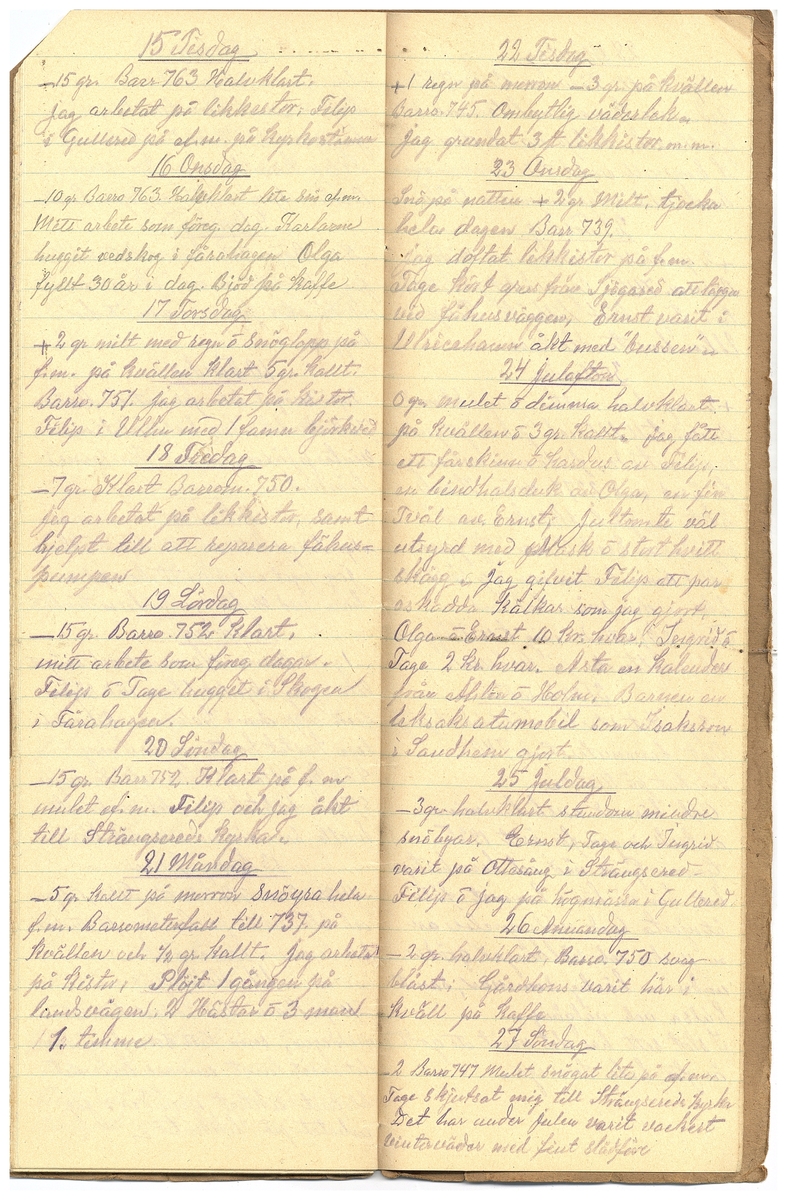 15 Tisdag
-15 gr. Barr 763 Halvklart.
jag arbetat på likkistor, Filip
i Gullered på ef.m. på Kyrkostämma
16 Onsdag
-10 gr Barro 763 Halvklart lite snö ef.m.
Mitt arbete som föreg. dag. Karlarne
hugget vedskog i fårahagen Olga
fyllt 30 år i dag. Bjöd på Kaffe
17 Torsdag
+2 gr milt med regn ö snöglopp på
f.m. på kvällen klart 5 gr. kallt.
Barro. 751 jag arbetat på kistor.
Filip i Ulln med 1 famn björkved
18 Fredag
-7 gr. Klart Barrom. 750.
jag arbetat på likkistor, samt
hjelpt till att reparera fähus=
pumpen
19 Lördag
-15 gr. Barro. 752 Klart.
mitt arbete som föreg dagar.
Filip ö Tage hugget i Skogen
i Fårahagen.
20 Söndag
-15 gr. Barr 752. Klart på f. m
mulet ef.m. Filip och jag åkt
till Strängsereds Kyrka.
21 Måndag
-5 gr kallt på morron Snöyra hela
f.m. Barrometerfall till 737 på
Kvällen och ½ gr kallt. jag arbetat
på kistor, Plöjt 1 gången på
landsvägen. 2 Hästar ö 3 man
1½ timme.
22 Tisdag
+1 regn på morron -3 gr. på kvällen
Barro. 745. Ombytlig väderlek.
Jag grundat 3 st likkistor m.m.
23 Onsdag
Snö på natten +2 gr Milt, tjocka
hela dagen Barr 739.
Jag doftat likkistor på f.m.
Tage kört grus från Sjögared att lägga
vid fähusväggen, Ernst varit i
Ulricehamn åkt med "bussen"
24 Julafton
0 gr. mulet ö dimma halvklart
på kvällen ö 3 gr. kallt. jag fått
ett fårskinn ö kardus av Filip,
en bindhalsduk av Olga, en fin
Tvål av Ernst, Jultomte väl
utsyrd med Mask ö stort hvitt
skägg. Jag gifvit Filip ett par
askadda Kälkar som jag gjort,
Olga ö Ernst 10 kr. hvar, Ingrid ö
Tage 2 kr. hvar. Asta en Kalender
från Ahlén ö Holm. Barnen en
leksaksatumobil som Isaksson
i Sandhem gjort.
25 Juldag
-3 gr halvklart stundom mindre
snöbyar. Ernst, Tage och Ingrid
varit på Ottasång i Strängsered-
Filip ö jag på högmässa i Gullered
26 Annandag
-2 gr. halvklart, Barro. 750 svag
blåst, Gårdhons varit här i
kväll på Kaffe
27 Söndag
-2 Barro 747 Mulet snögat lite på ef.m.
Tage skjutsat mig till Strängsereds Kyrka
Det har under julen varit vackert
vinterväder med fint slädföre